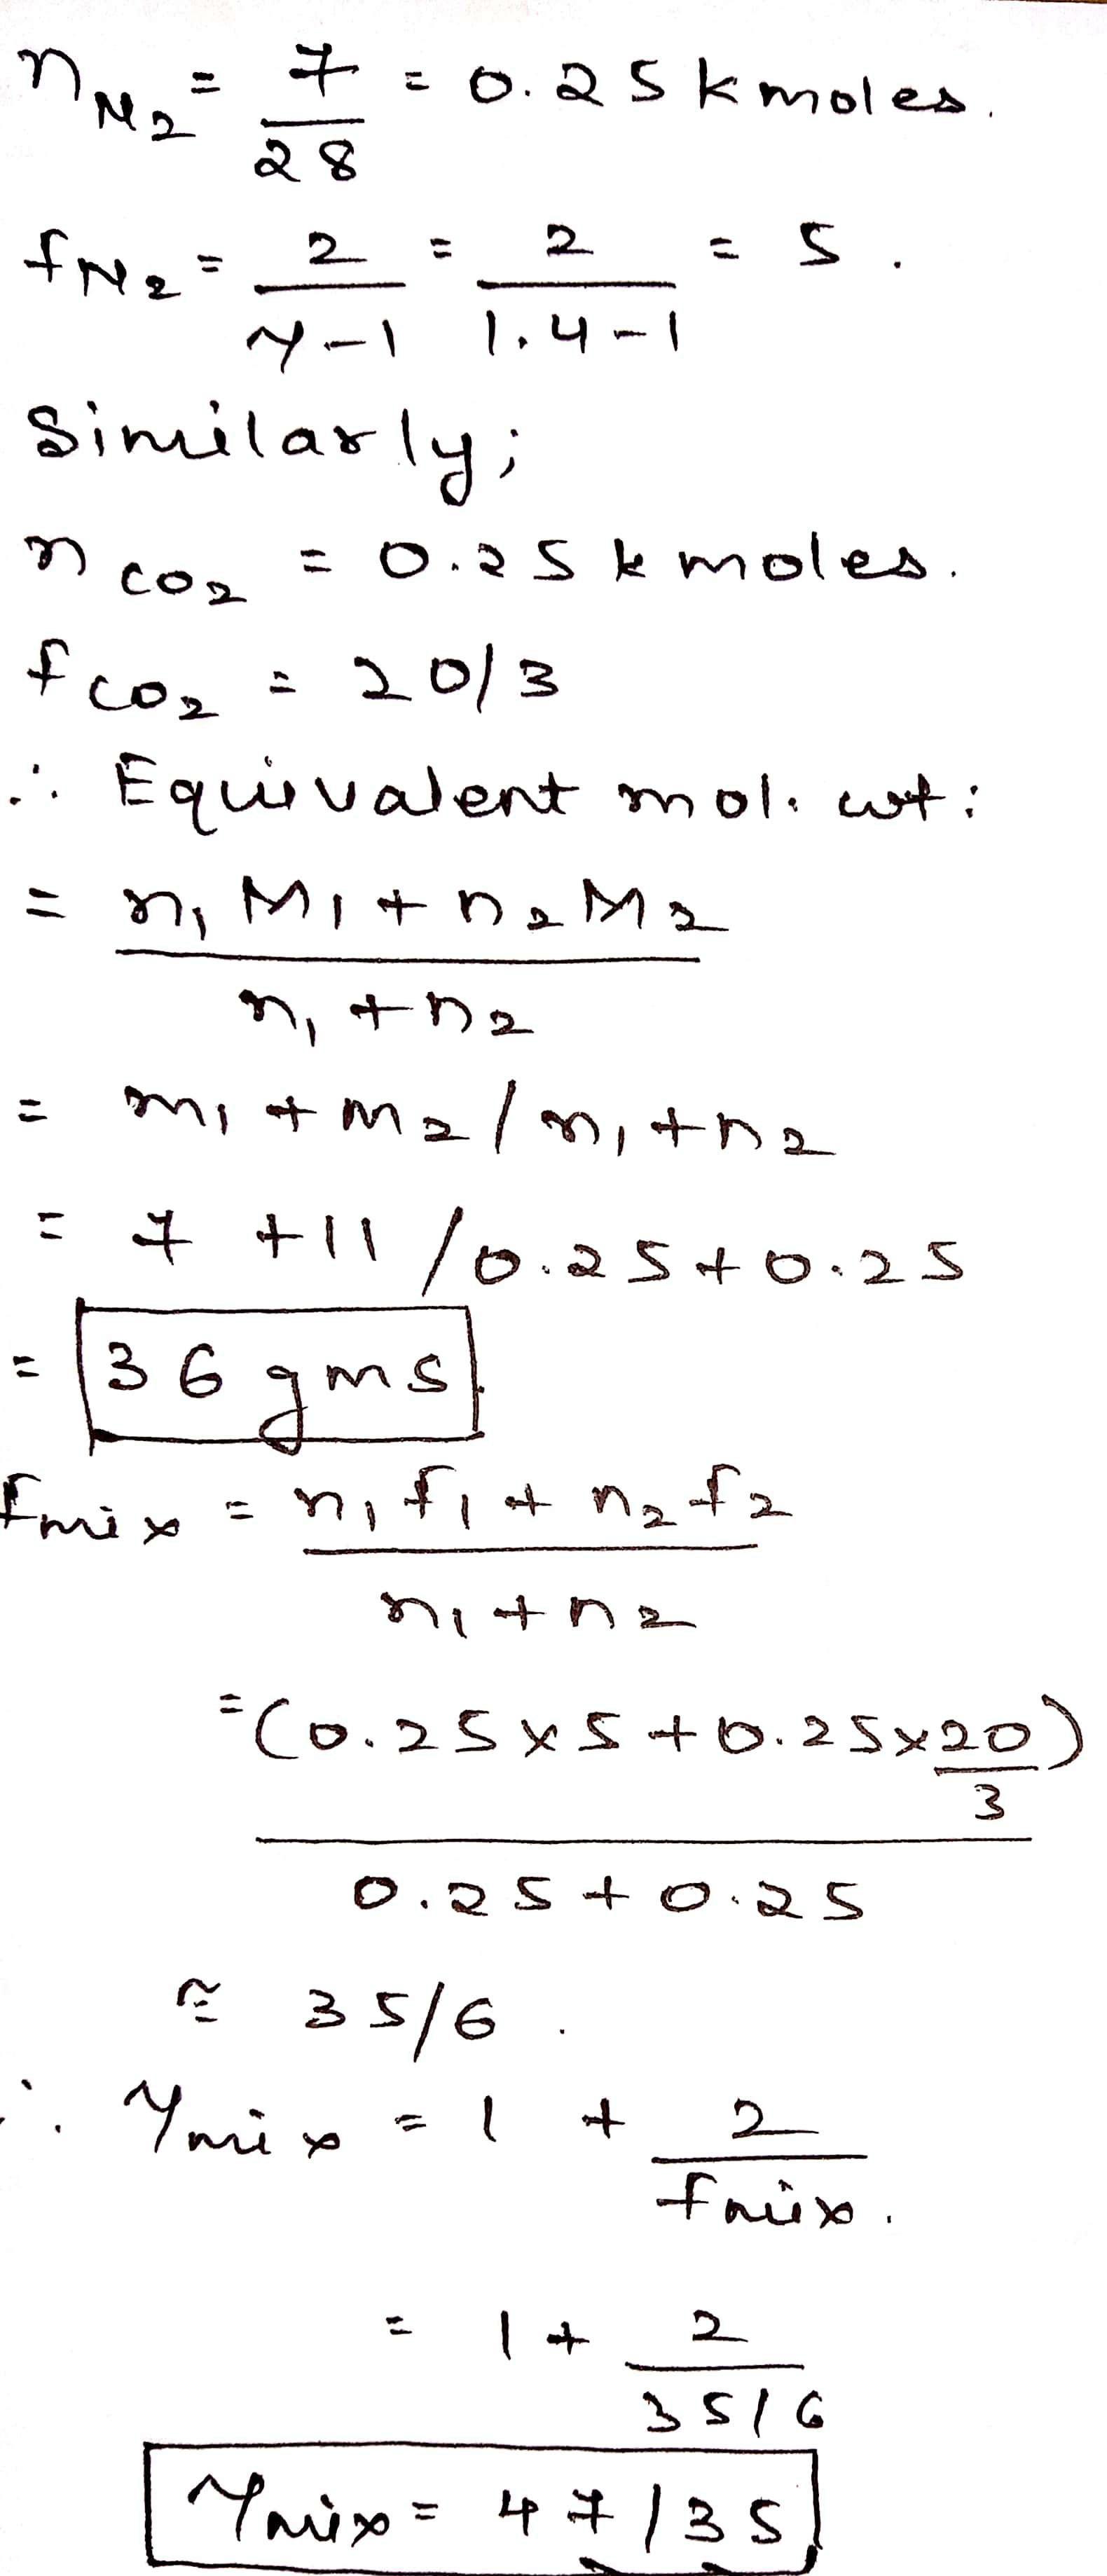 n N₂ = 7/28 = 0.25 kmoles.
f N₂ = 2/γ-1 = 2/1.4-1 = 5.
Similarly;
n CO₂ = 0.25 kmoles.
f CO₂ = 20/3
∴ Equivalent mol. wt:
= n₁M₁ + n₂M₂
n₁ + n₂
= m₁ + m₂ / n₁ + n₂
= 7 + 11 / 0.25 + 0.25
= 36 gms.
fmix = n₁f₁ + n₂f₂
n₁ + n₂
= (0.25 × 5 + 0.25 × 20/3)
0.25 + 0.25
≅ 35/6.
∴ γmix = 1 + 2/fmix.
= 1 + 2/35/6
γmix = 47/35